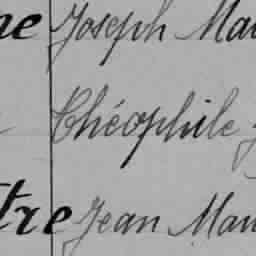 ne Joseph Mau
Théophile
tre Jean Mau